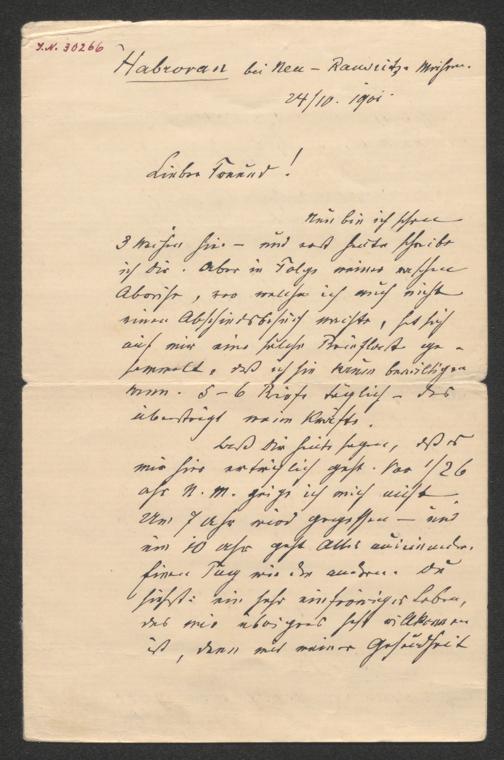 J.N. 30266
Habrovan bei Neu-Rausnitz Mähren.
24/10. 1901.
Lieber Freund!
Nun bin ich schon
3 Wochen hier – und erst heute schreibe
ich dir. Aber in Folge meiner raschen
Abreise, vor welcher ich auch nicht
einen Abschiedsbesuch machte, hat sich
auf mir eine solche Brieflast ge-
sammelt, daß ich sie kaum bewältigen
kann. 5–6 Briefe täglich – das
übersteigt meine Kräfte.
Laß dir heute sagen, daß es
mir hier erträglich geht. Vor 1/26
Uhr N.M. zeige ich mich nicht.
Um 7 Uhr wird gegessen – und
um 10 Uhr geht Alles auseinander.
Einen Tag wie den andern. Du
siehst: ein sehr einförmiges Leben,
das mir übrigens sehr willkommen
ist, denn mit meiner Gesundheit